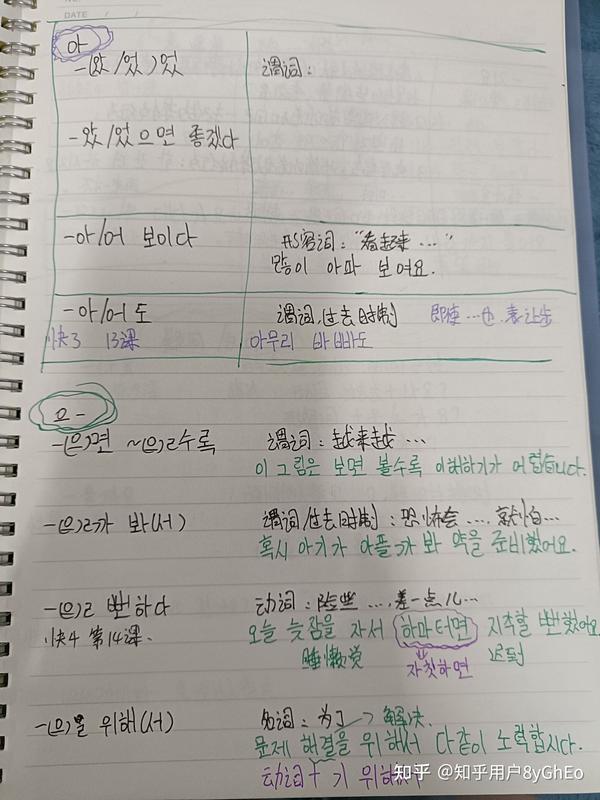 DATE
아
-(았/었)었 谓词:
-았/었으면 좋겠다
-아/어 보이다 形容词:"看起来…"
많이 아파 보여요.
-아/어도 谓词,过去时制 即使…也,表让步
快3 13课 아무리 바빠도
으-
-(으)면 ~(으)ㄹ수록 谓词:越来越…
이 그림은 보면 볼수록 이해하기가 어렵습니다.
-(으)ㄹ까 봐(서) 谓词/过去时制:恐怕会…,就怕…
혹시 아기가 아플까 봐 약을 준비했어요.
-(으)ㄹ 뻔하다 动词:险些…,差一点儿…
快4 第14课. 오늘 늦잠을 자서 하마터면 지각할 뻔했어요
睡懒觉 자칫하면 迟到
-(으)를 위해(서) 名词:为了 → 解决.
문제 해결을 위해서 다같이 노력합시다.
动词+기 위해서
知乎 @知乎用户8yGhEo